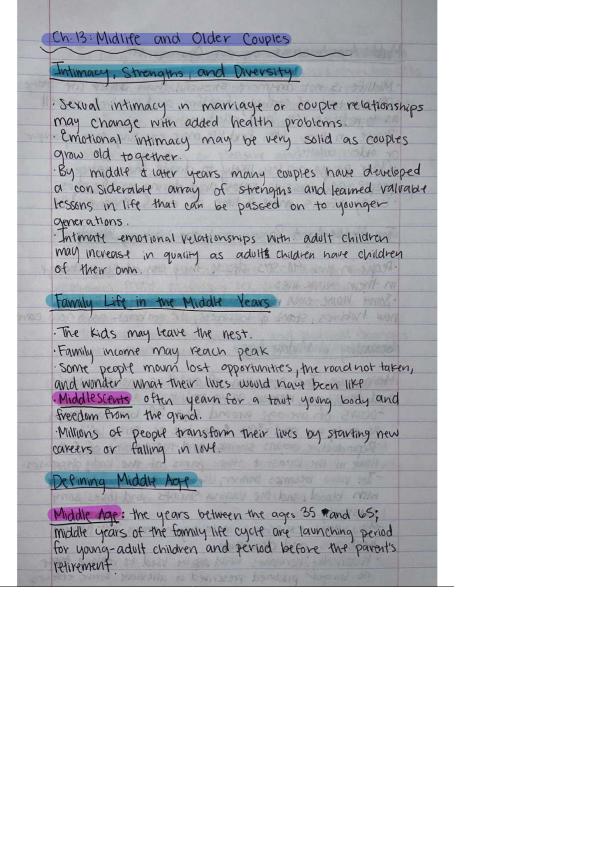 Ch. 13: Midlife and Older Couples
Intimacy, Strengths, and Diversity
· Sexual intimacy in marriage or couple relationships
may change with added health problems.
· Emotional intimacy may be very solid as couples
grow old together.
· By middle & later years many couples have developed
a considerable array of strengths and learned valuable
lessons in life that can be passed on to younger
generations.
· Intimate emotional relationships with adult children
may increase in quality as adult children have children
of their own.
Family Life in the Middle Years
· The kids may leave the nest.
· Family income may reach peak
· Some people mourn lost opportunities, the road not taken,
and wonder what their lives would have been like
· Middlescents often yearn for a taut young body and
freedom from the grind.
· Millions of people transform their lives by starting new
careers or falling in love.
Defining Middle Age
Middle Age: the years between the ages 35 and 65;
middle years of the family life cycle are launching period
for young-adult children and period before the parent's
retirement.